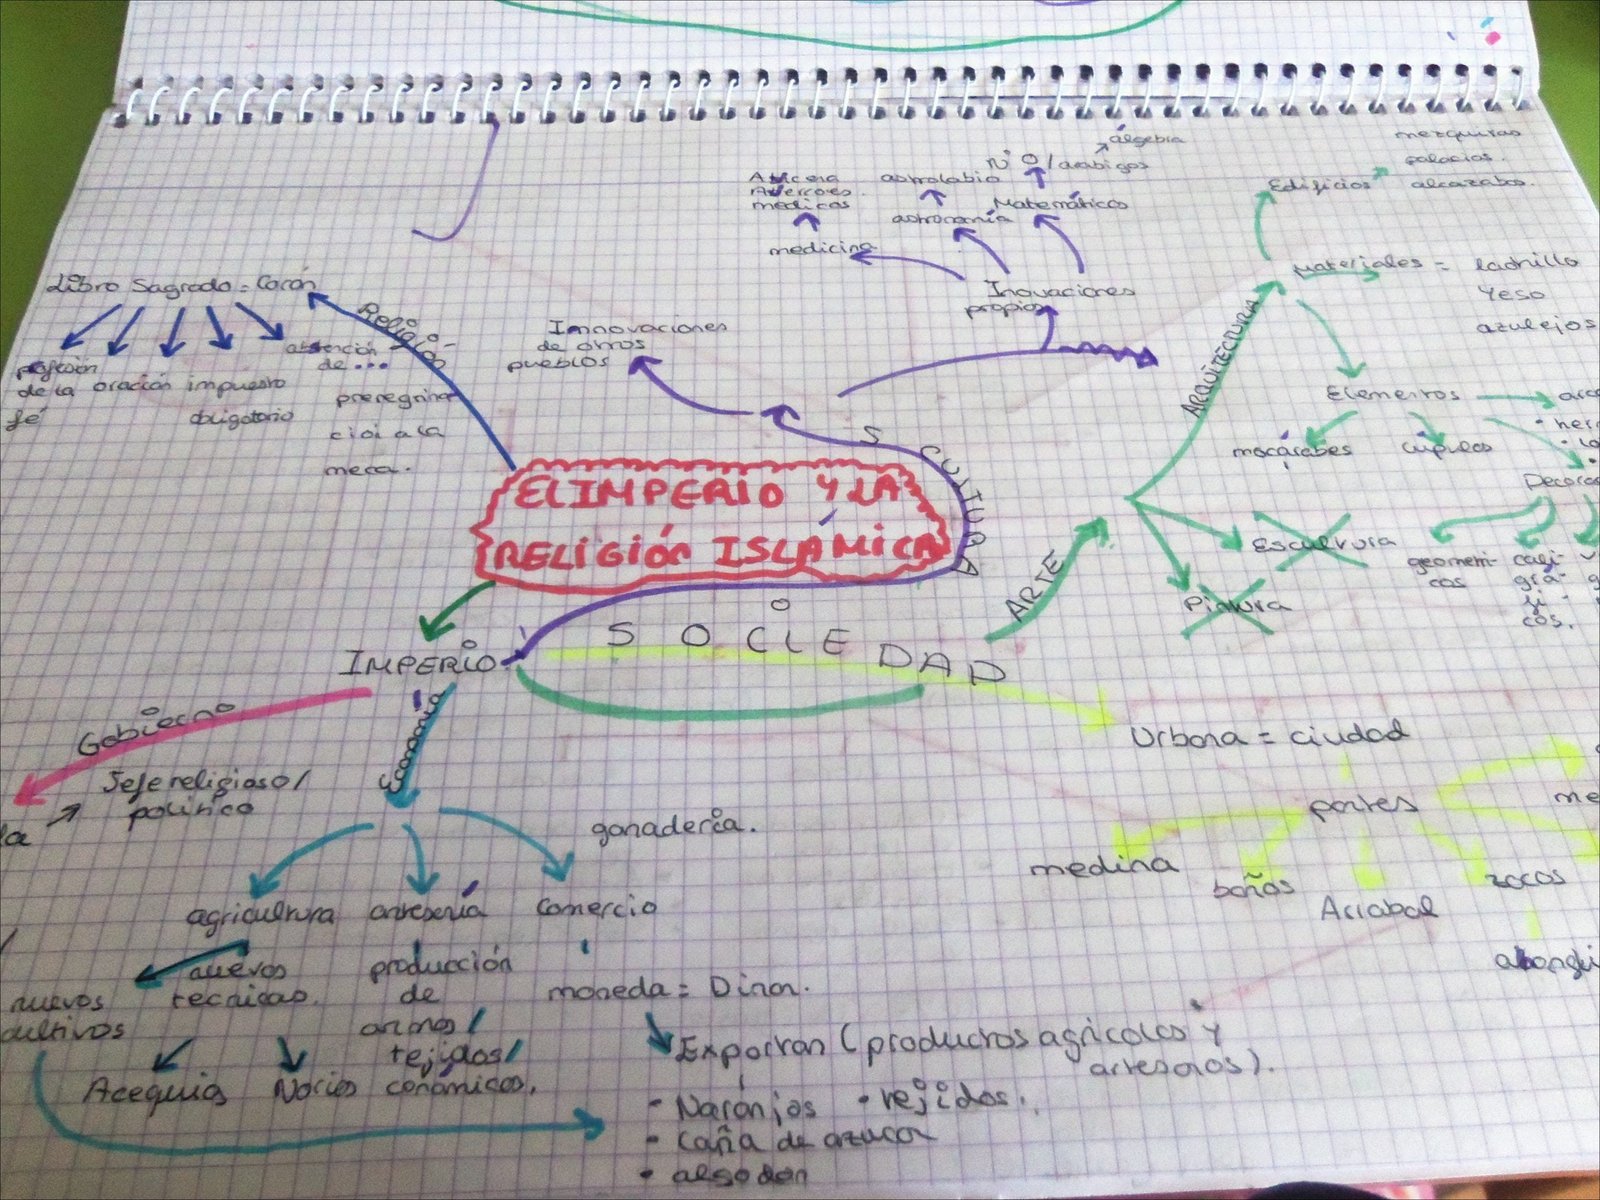 EL IMPERIO Y LA
RELIGIÓN ISLÁMICA
Religión
Libro Sagrado = Corán
profesión
de la
fé
oración
impuesto
obligatorio
de...
preregrina
ción a la
meca.
CULTURA
Innovaciones
de otros
pueblos
Inovaciones
propias
medicina
Avicena
Averroes.
medicos
astronomía
astrolabio
Matemáticas
Nº 0/arabigos
álgebra
ARTE
ARQUITECTURA
Edificios
mezquitas
palacios.
alcazabas.
Materiales = ladrillo
Yeso
azulejos
Elementos
mocárabes
cúpulas
Decorac
geometri-
cos
cali-
grá-
fi-
cos.
Escultura
Pintura
SOCIEDAD
Urbana = ciudad
partes
medina
baños
Arrabal
zocos
IMPERIO
Gobierno
Jefe religioso/
político
Economía
agricultura
artesanía
comercio
ganadería.
nuevas
tecnicas.
nuevos
cultivos
Acequias
Norias
producción
de
armas/
tejidos/
cerámicas.
moneda = Dinar.
Exportan (productos agrícolas y
artesanos).
- Naranjas
• tejidos.
- caña de azucar
• algodon